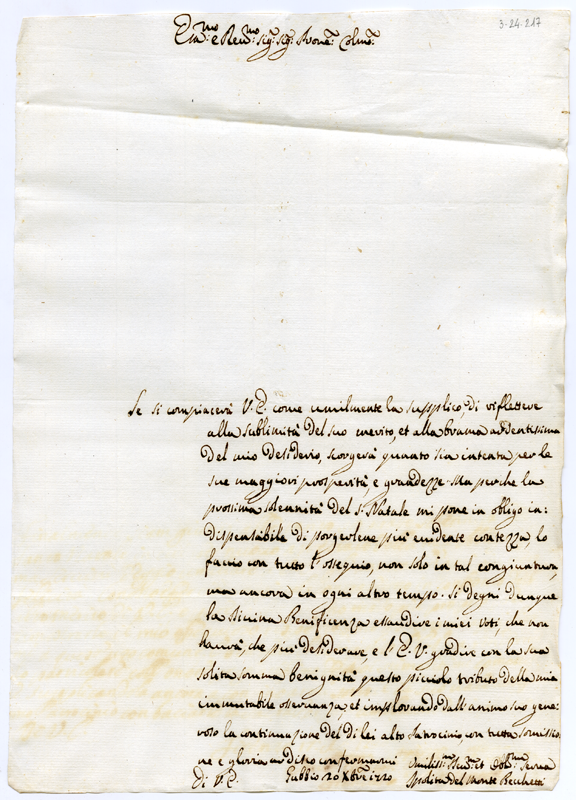 3-24.217
Em.mo e Rev.mo Sig: Sig: Prone: Colmo:
Se si compiacerà V. E. come umilmente la supplico di riflettere
alla sublimità del suo merito, et alla brama ardentissima
del mio desiderio, scorgerà quanto sia intenta per le
sue maggiori prosperità, e grandezze. Ma perche la
prossima solennità del S. Natale mi pone in obligo in:
dispensabile di porgerlene più evidente contezza, lo
faccio con tutto l'ossequio, non solo in tal congiuntura,
ma ancora in ogni altro tempo. Si degni dunque
la Divina Beneficenza essaudire i miei voti, che non
haurà, che più desiderare, e l'E. V. gradire con la sua
solita somma benignità questo picciolo tributo della mia
immutabile osservanza, et implorando dall'animo suo gene:
roso la continuazione del di lei alto Patrocinio con tutta somissio
ne e gloria mi dico confermarmi
Di V. E. Gubbio 20 Xbre 1720
Umiliss.ma et Serva
Ipolita del Monte Becchetti